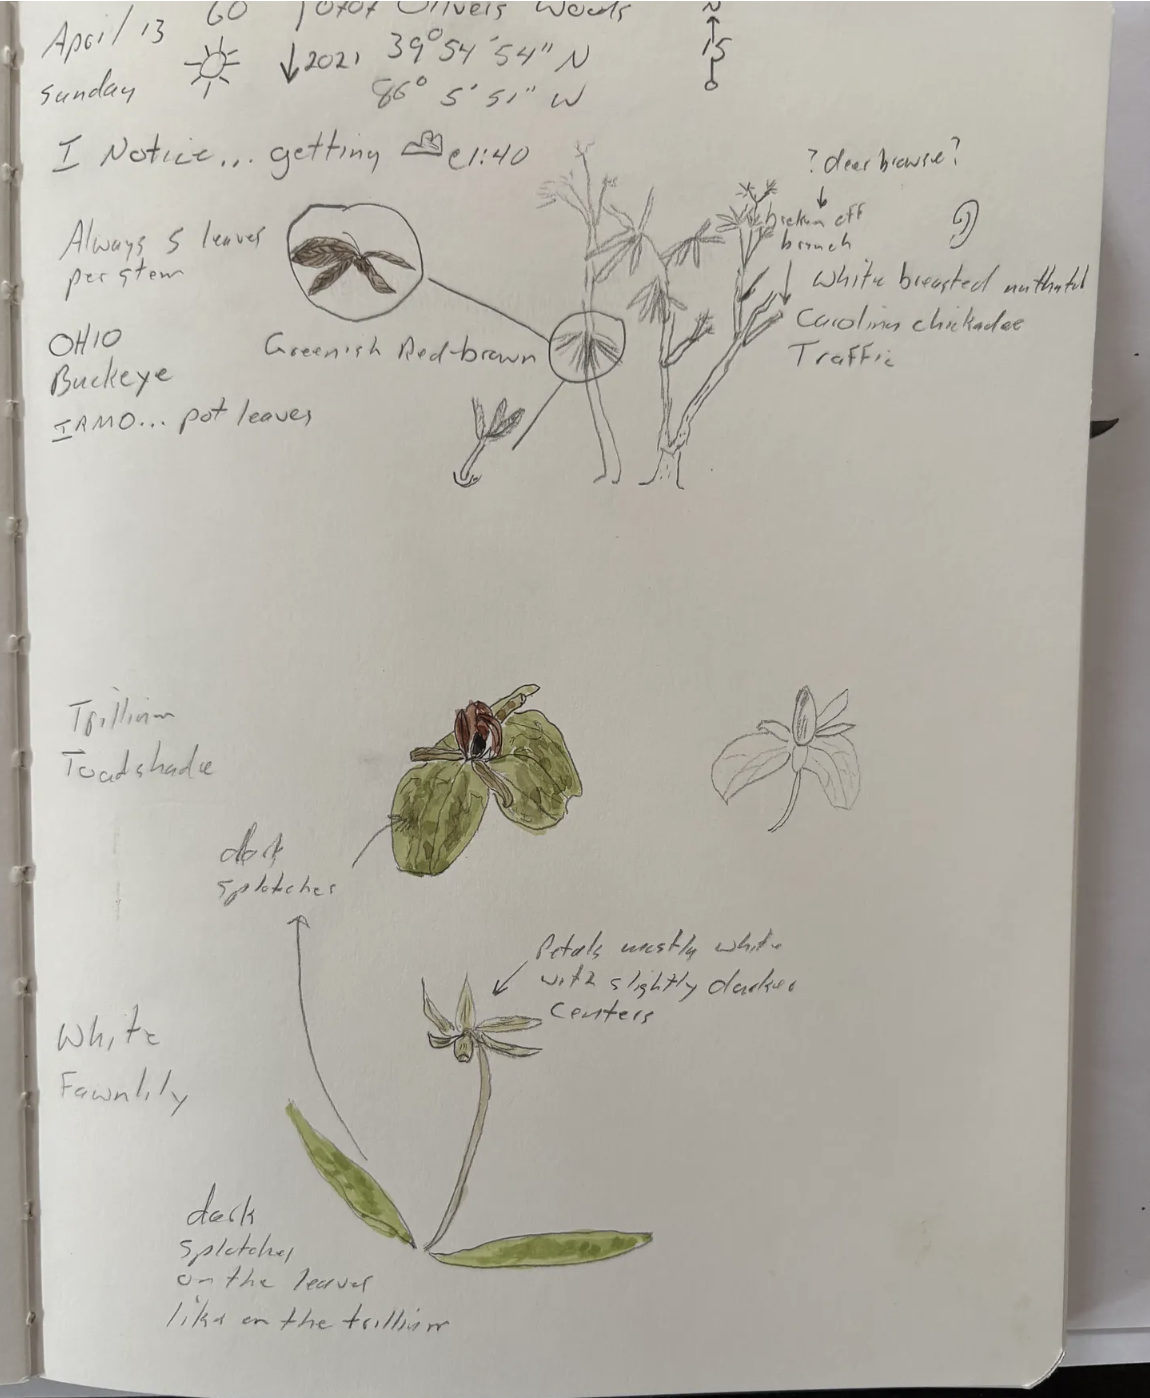 April 13 60 Oliver's Woods N
Sunday ↓2021 39°54'54" N 15
86° 5' 51" W
I Notice... getting @1:40
?deer browse?
broken off
branch
Always 5 leaves
per stem
White breasted nuthatch
Carolina chickadee
Traffic
OHIO
Buckeye
Greenish Red-brown
IRMO... pot leaves
Trillium
Toadshade
dark
splotches
Petals mostly white
with slightly darker
Centers
White
Fawnlily
dark
splotches
on the leaves
like on the trillium